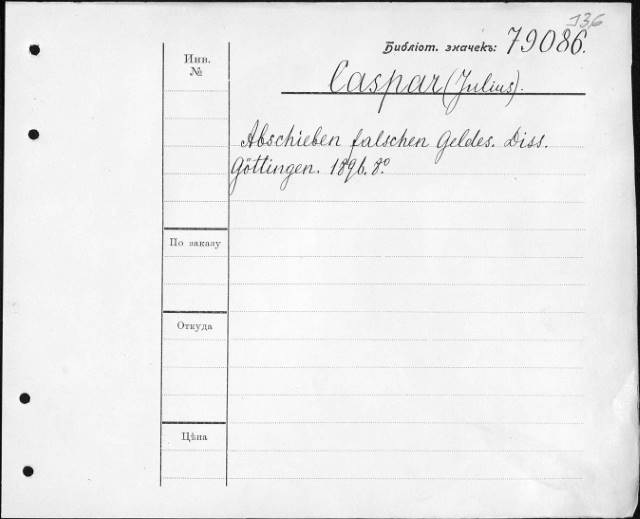 J36
Библіот. значекъ: 79086.
Инв.
№
Caspar (Julius).
Abschieben falschen Geldes. Diss.
Göttingen. 1896. 8.°
По заказу
Откуда
Цѣна